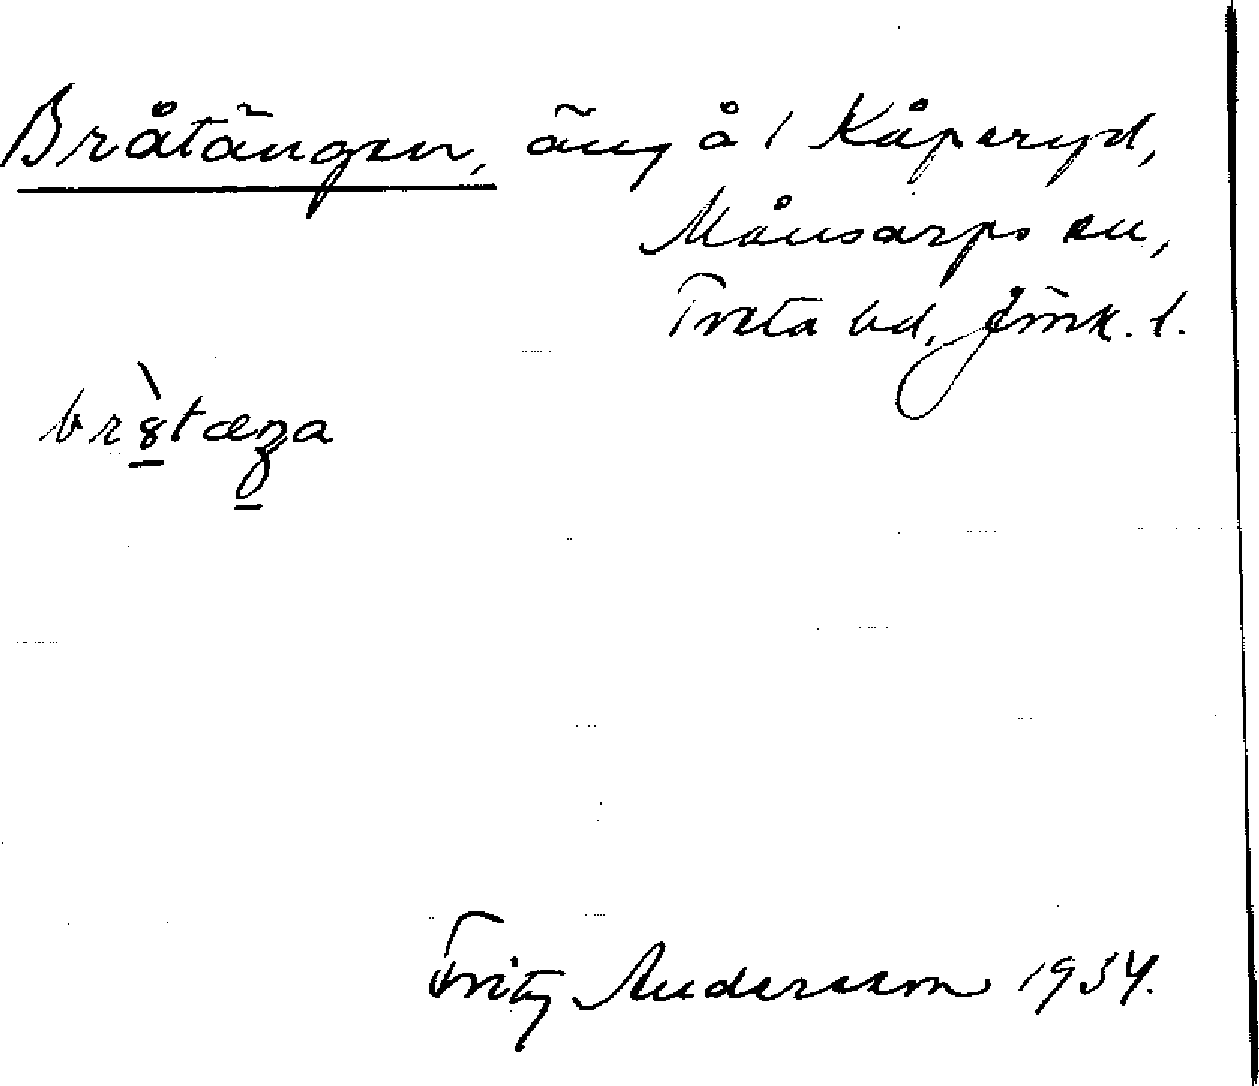 Bråtängen, äng å 1 Kåperyd,
Månsarps sn,
Tveta hd, Jönk. l.
br8̀tæŋa
Fritz Andersson 1934.